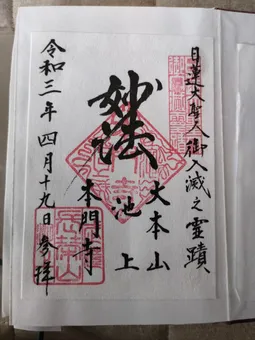 日蓮大聖人御入滅之霊蹟
大本山
池上
妙法
本門寺
令和三年四月十九日参拝